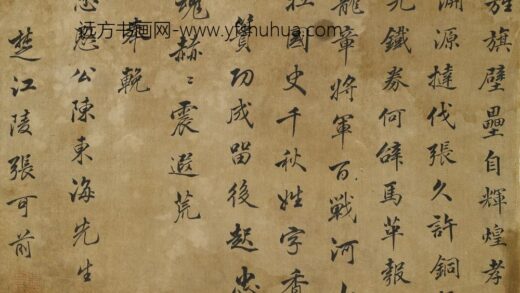 旌旗壁壘自輝煌孝
淵源撻伐張久許銅
鐵券何辭馬革報
龍章將軍百戰河
國史千秋姓字香
績功成留後起忠
赫〻震遐荒
奉輓
公陳東海先生
楚江陵張可前
远方书画网-www.yfshuhua.com